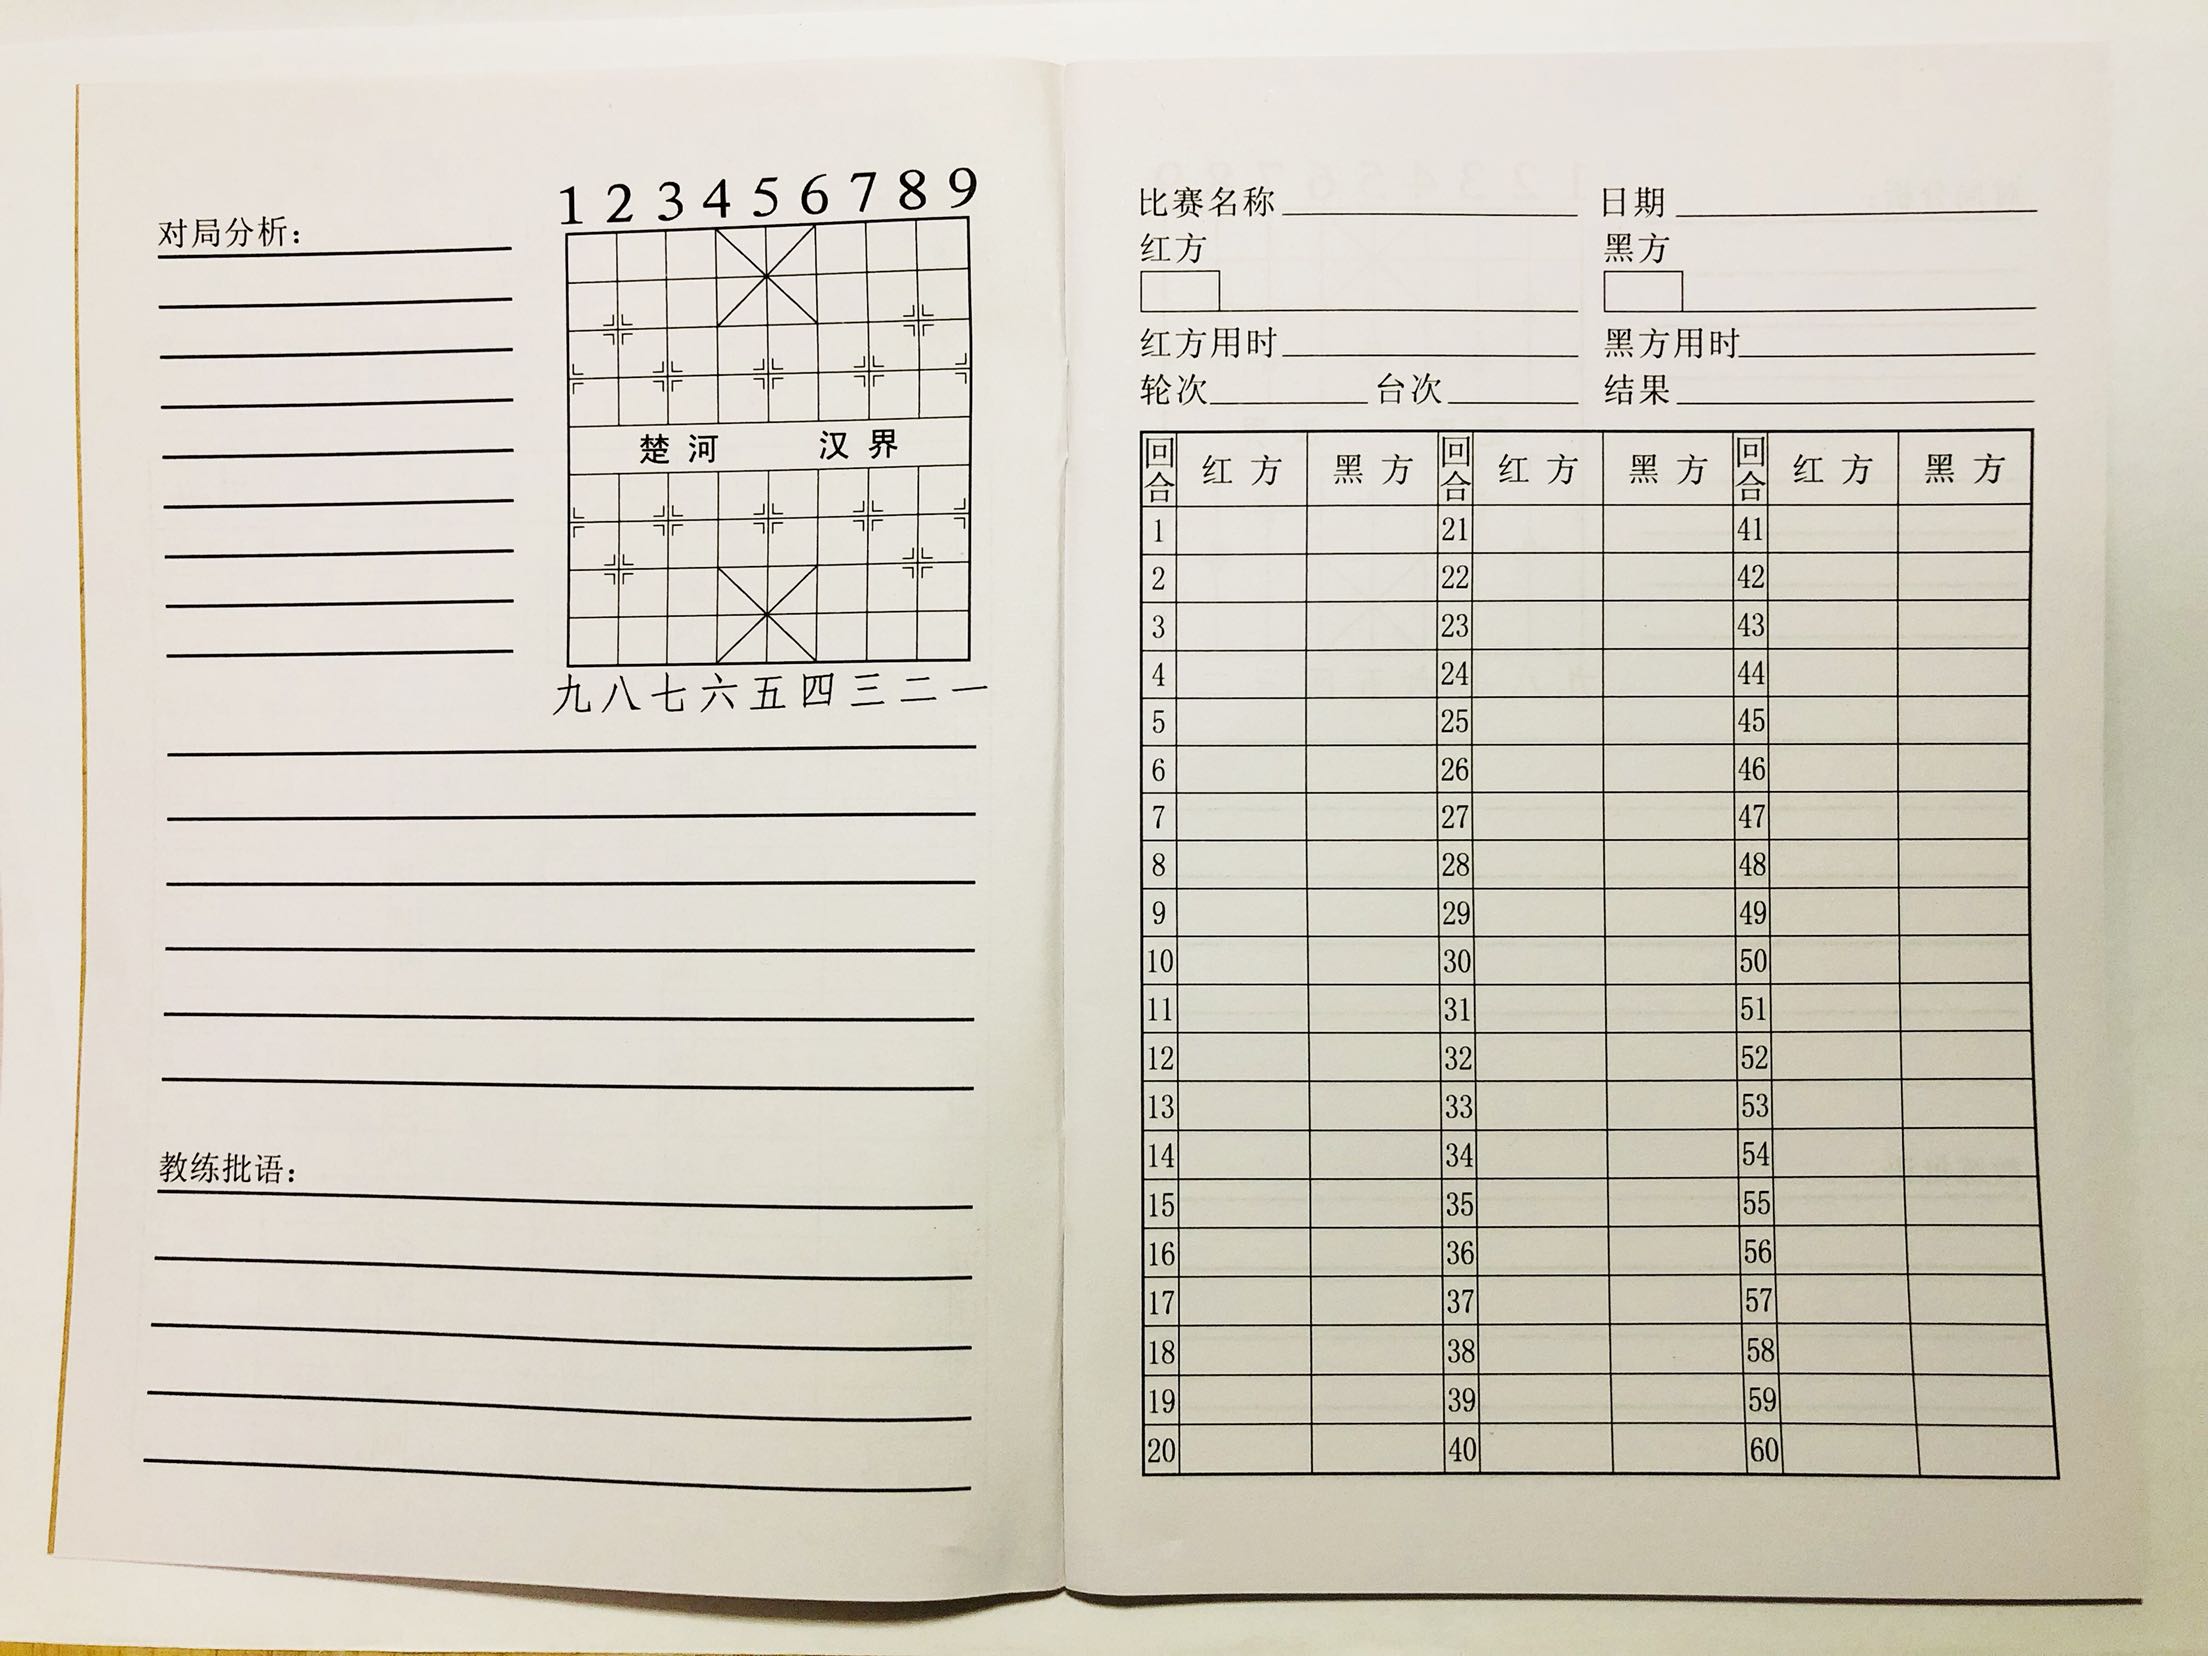 对局分析：
1 2 3 4 5 6 7 8 9
楚河 汉界
九 八 七 六 五 四 三 二 一
教练批语：
比赛名称 日期
红方 黑方
红方用时 黑方用时
轮次 台次 结果
回合 红方 黑方 回合 红方 黑方 回合 红方 黑方
1 21 41
2 22 42
3 23 43
4 24 44
5 25 45
6 26 46
7 27 47
8 28 48
9 29 49
10 30 50
11 31 51
12 32 52
13 33 53
14 34 54
15 35 55
16 36 56
17 37 57
18 38 58
19 39 59
20 40 60